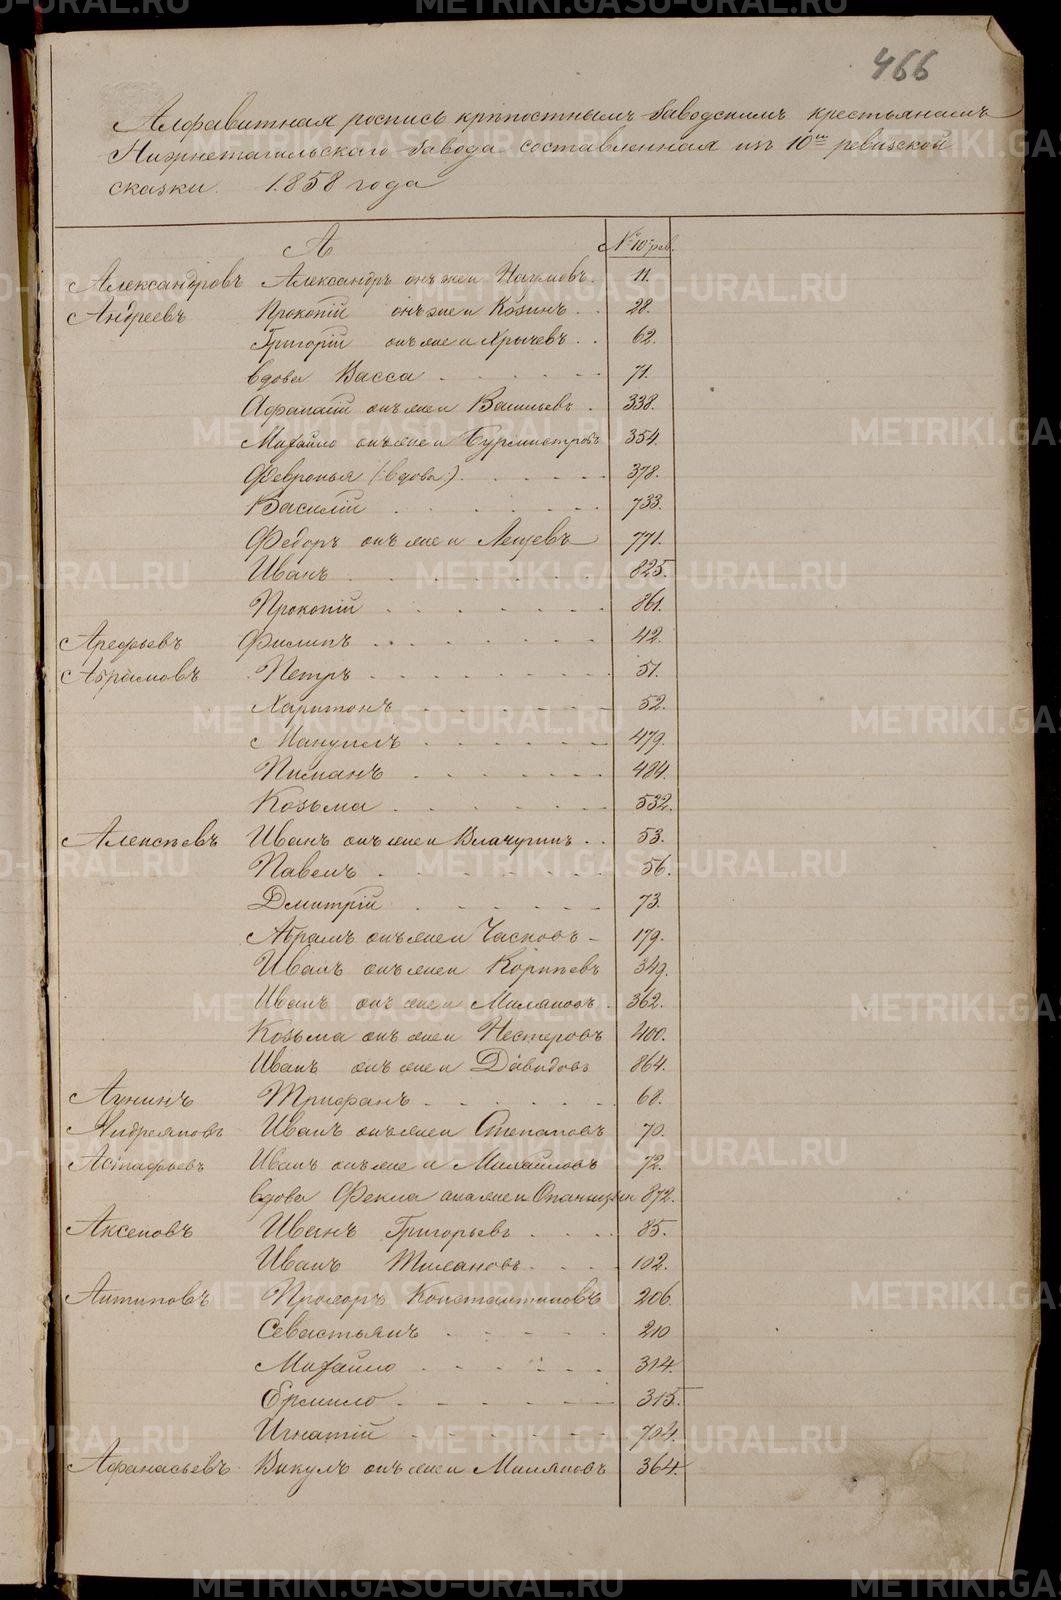 466
Алфавитная роспись крѣпостнымъ заводскимъ крестьянамъ
Нижнетагильскаго завода составленная изъ 10ой ревизской
сказки. 1858 года
А № 10 рев.
Александровъ Александръ онъ же и Наумовъ. 11.
Андреевъ Прокопій онъ же и Козинъ . . 28.
Григорій онъ же и Хрычевъ . . 62.
вдова Васса 71.
Афанасій онъ же и Васильевъ . 338.
Михайло онъ же и Бурмистровъ 354.
Февронья (вдова) 378.
Василій 733.
Федоръ онъ же и 771.
Иванъ 825.
Прокопій 861.
Арефьевъ Филипъ 42.
Абрамовъ Петръ 51.
Харитонъ 52.
Мануилъ 479.
Пиманъ 484.
Козьма 532.
Алексѣевъ Иванъ онъ же и 53.
Павелъ 56.
Дмитрій 73.
Абрамъ онъ же и Часновъ 179.
Иванъ онъ же и 349.
Иванъ онъ же и 362.
Козьма онъ же и Нестеровъ 400.
Иванъ онъ же и Давыдовъ 864.
Лунинъ Трифанъ 68.
Андреяновъ Иванъ онъ же и Степановъ 70.
Астафьевъ Иванъ онъ же и Михайловъ 72.
вдова Фекла она же и 872.
Аксеновъ Иванъ Григорьевъ 85.
Иванъ 102.
Антиповъ Прохоръ Константиновъ 206.
Севастьянъ 210
Михайло 314.
Ермило 315.
Игнатій 704.
Афанасьевъ Викулъ онъ же и 364.
METRIKI.GASO-URAL.RU